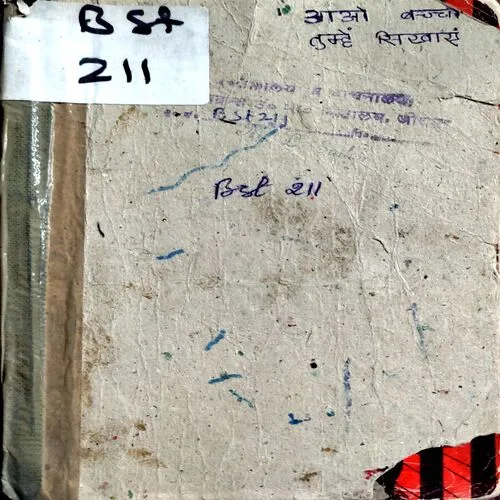 B St
211
आओ बच्चो
तुम्हें सिखाएं
व वाचनालय,
BSt 211
BSt 211